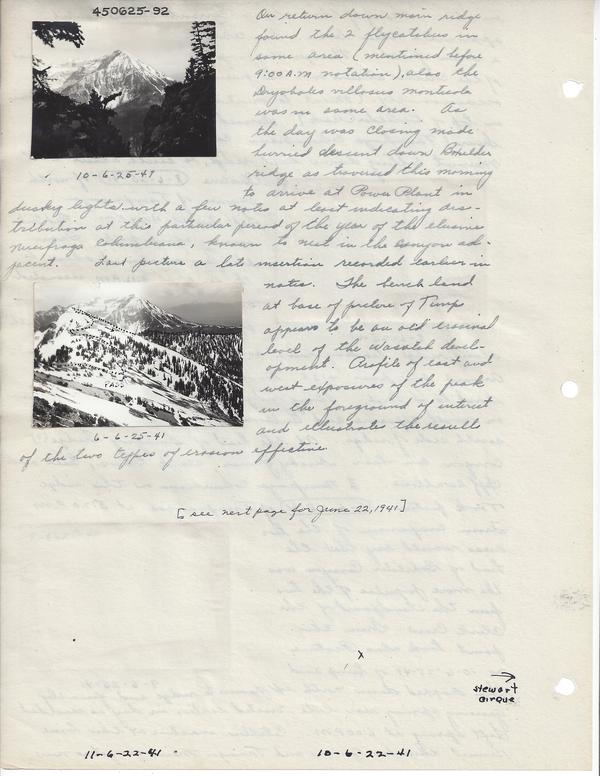 450625-92
On return down main ridge
found the 2 flycatchers in
same area (mentioned before
9:00 A.M notation), also the
Dryobates villosus monticola
was in same area. As
the day was closing made
hurried descent down Boulder
ridge as traversed this morning
to arrive at Power Plant in
10-6-25-41
dusky lights with a few notes at least indicating dis-
tribution at this particular period of the year of the elusive
Nucifraga columbiana, known to nest in the canyon ad-
jacent. Last picture a late insertion recorded earlier in
notes. The bench land
at base of picture of Timp
appears to be an old erosional
level of the Wasatch devel-
opment. Profile of east and
west exposures of the peak
in the foreground of interest
and illustrates the results
PASS
6-6-25-41
of the two types of erosion effective.
[see next page for June 22, 1941]
x
stewart
cirque
11-6-22-41
10-6-22-41